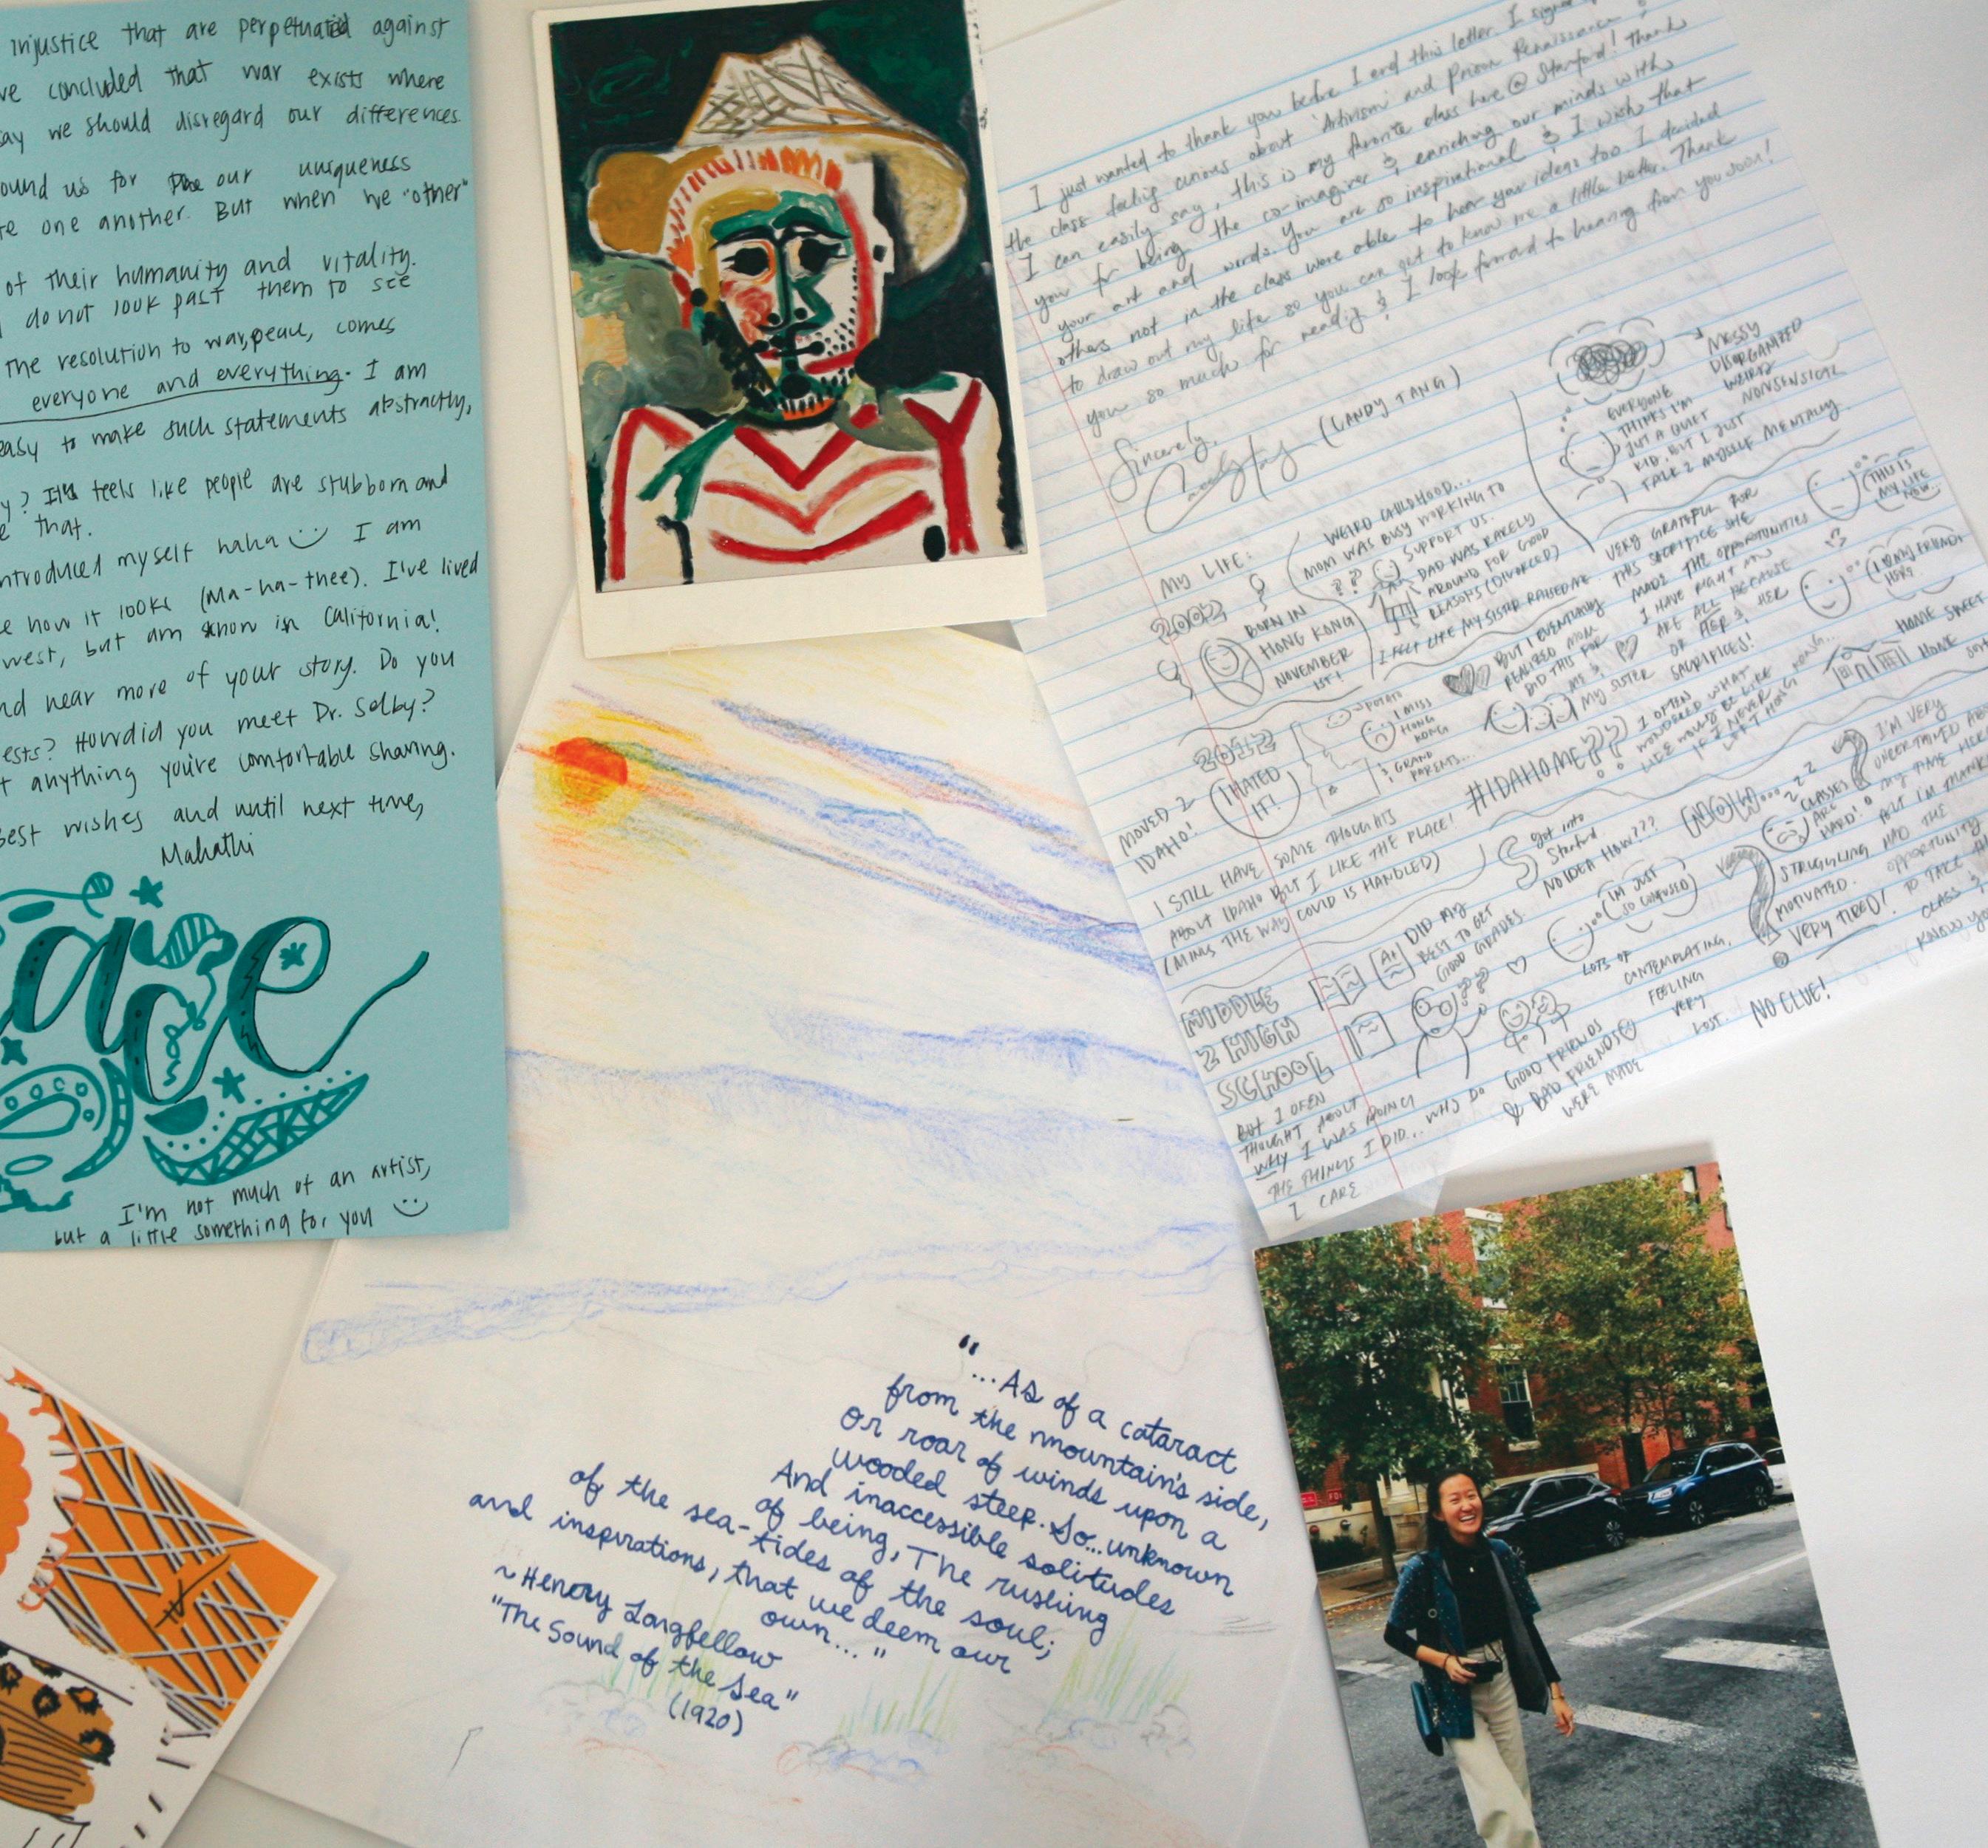 injustice that are perpetuated against
concluded that war exists where
we should disregard our differences.
us for our uniqueness
one another. But when we "other"
of their humanity and vitality.
do not look past them to see
The resolution to war, peace, comes
everyone and everything. I am
easy to make such statements abstractly,
? It feels like people are stubborn and
that.
introduced myself haha I am
how it looks (Ma-ha-thee). I've lived
west, but am in California!
hear more of your story. Do you
How did you meet Dr. Selby?
anything you're comfortable sharing.
Best wishes and until next time,
Mahathi
ace
I'm not much of an artist,
but a little something for you
I just wanted to thank you before I end this letter. I
the class feeling curious about 'Artivism' and Prison Renaissance &
I can easily say, this is my favorite class here @ Stanford! Thank
you for being the co-imaginer & enriching our minds with
your art and words. You are so inspirational & I wish that
others not in the class were able to hear your ideas too. I decided
to draw out my life so you can get to know me a little better. Thank
you so much for reading & I look forward to hearing from you soon!
Sincerely,
(CANDY TANG)
MESSY
DISORGANIZED
WEIRD
NONSENSICAL
EVERYONE
THINKS I'M
JUST A QUIET
KID, BUT I JUST
TALK 2 MYSELF MENTALLY.
THIS IS
MY LIFE
NOW...
MY LIFE:
2002
BORN IN
HONG KONG
NOVEMBER
1ST!
WEIRD CHILDHOOD...
MOM WAS BUSY WORKING TO
SUPPORT US.
DAD WAS RARELY
AROUND FOR GOOD
REASONS (DIVORCED)
I FELT LIKE MY SISTER RAISED ME.
BUT I EVENTUALLY
REALIZED MOM
DID THIS FOR
ME &
MY SISTER
VERY GRATEFUL FOR
THIS SACRIFICE SHE
MADE. THE OPPORTUNITIES
I HAVE RIGHT NOW
ARE ALL BECAUSE
OF HER & HER
SACRIFICES!
HOME SWEET
HOME
2012
MOVED 2
IDAHO!
I HATED
IT!
POTATO
I MISS
HONG
KONG
& GRAND
PARENTS...
#IDAHOME??
I OFTEN
WONDERED WHAT
LIFE WOULD BE LIKE
IF I NEVER
LEFT HONG KONG...
I STILL HAVE SOME THOUGHTS
ABOUT IDAHO BUT I LIKE THE PLACE!
(MINUS THE WAY COVID IS HANDLED)
MIDDLE
2 HIGH
SCHOOL
A+
DID MY
BEST TO GET
GOOD GRADES.
BUT I OFTEN
THOUGHT ABOUT
WHY I WAS DOING
THE THINGS I DID... WHY DO
I CARE
GOOD FRIENDS
& BAD FRIENDS
WERE MADE
got into
Stanford
NO IDEA HOW???
I'M JUST
SO CONFUSED
LOTS OF
CONTEMPLATING,
FEELING
VERY
LOST.
NOW...
ZZZ
CLASSES
ARE
HARD!
STRUGGLING
MOTIVATED.
VERY TIRED!
NO CLUE!
I'M VERY
UNCERTAIN
MY TIME HERE
BUT I'M
HAD THE
OPPORTUNITY
TO TAKE
CLASS &
KNOW
"...As of a cataract
from the mountain's side,
Or roar of winds upon a
wooded steep. So...unknown
And inaccessible solitudes
of being, The rushing
of the sea-tides of the soul;
and inspirations, that we deem our
own..."
~Henry Longfellow
"The Sound of the Sea"
(1920)